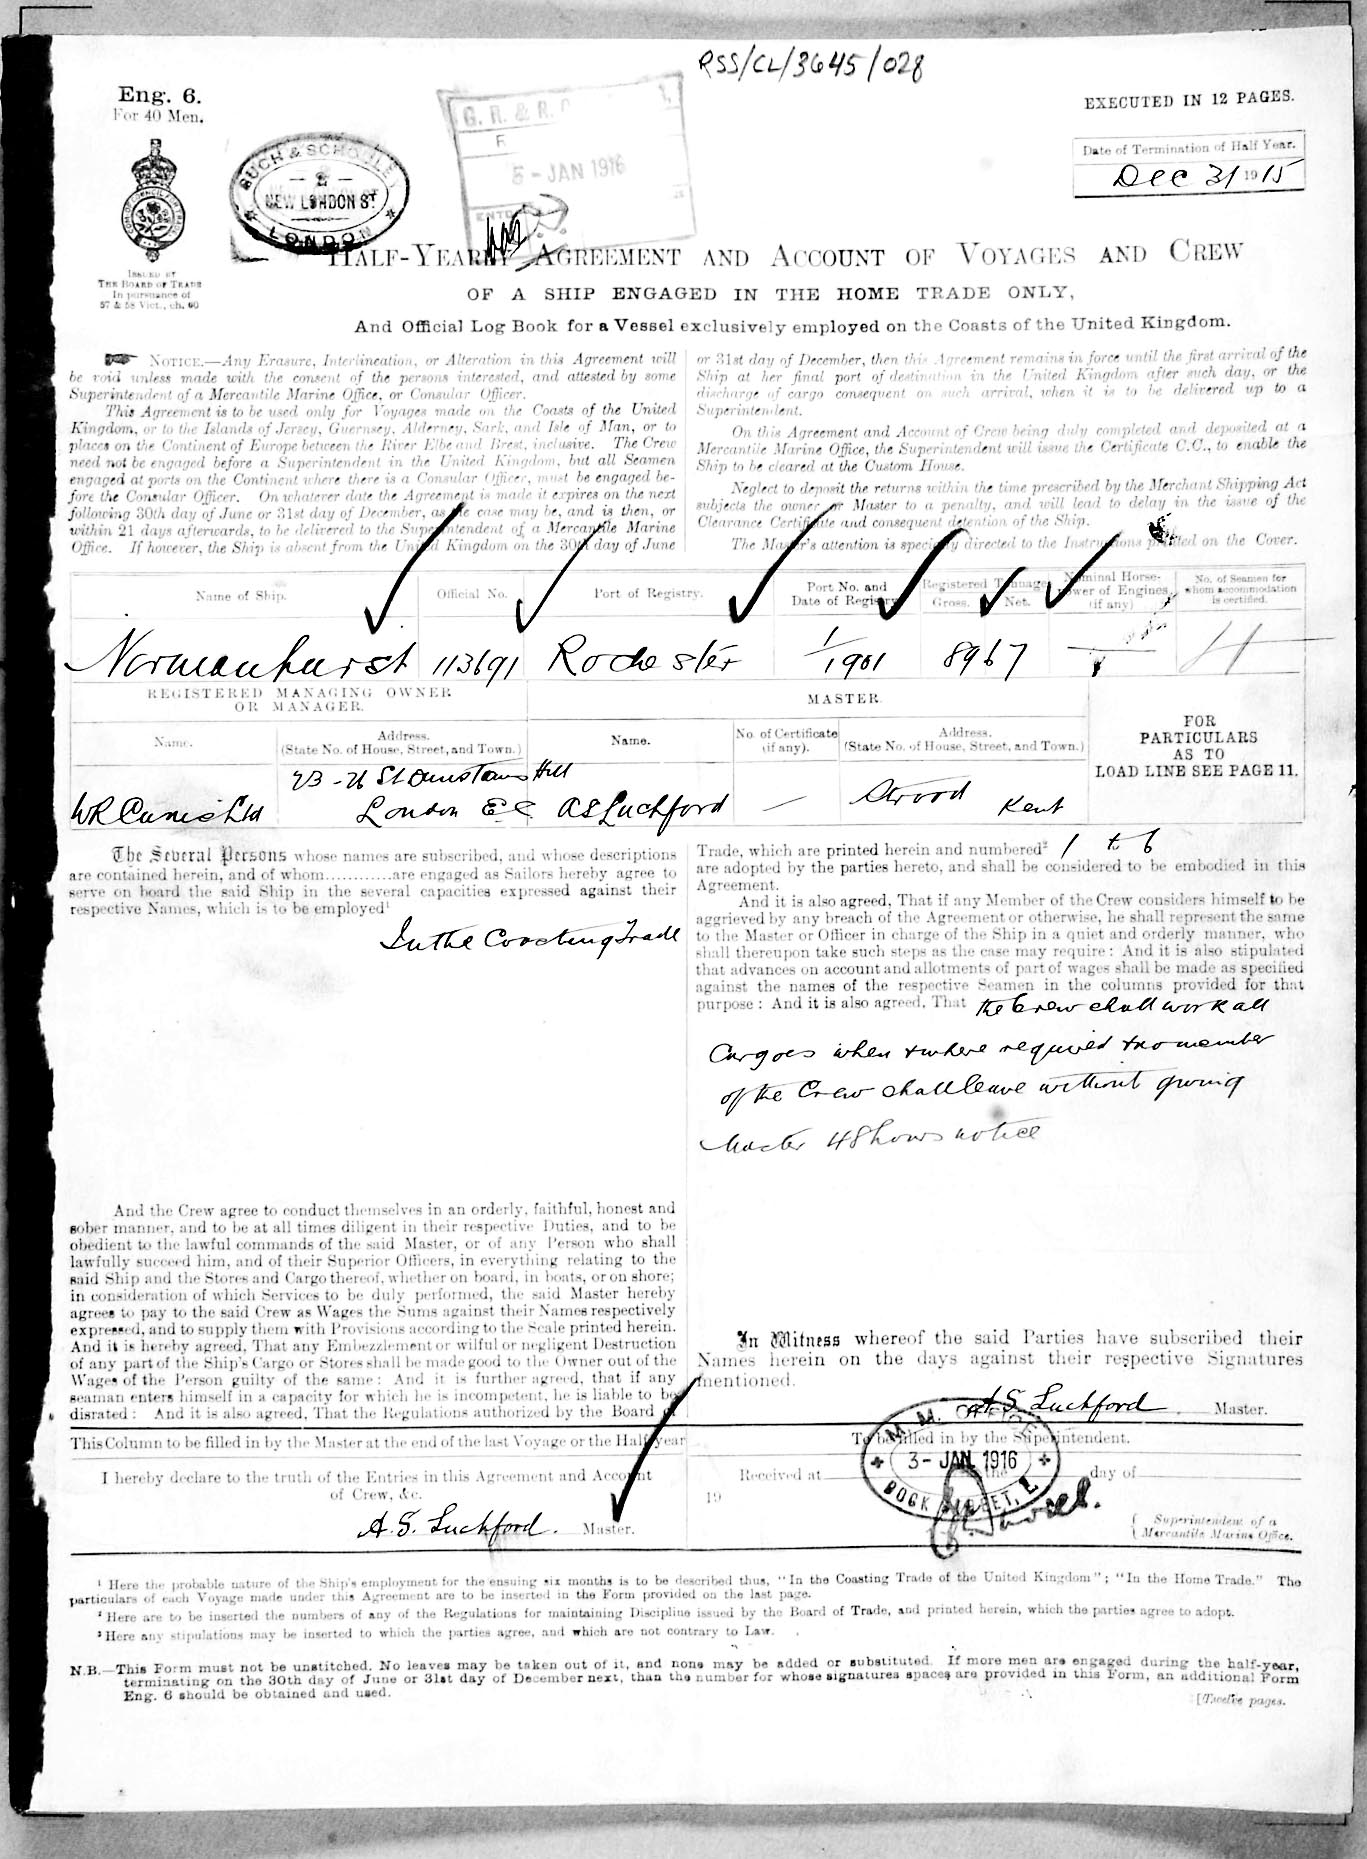 RSS/CL/3645/028
Eng. 6.
For 40 Men.
EXECUTED IN 12 PAGES.
Date of Termination of Half Year.
Dec 31 1915
SUCH & SCHOOLEY
2
NEW LONDON ST
LONDON
G. R. & R.
5 - JAN 1916
ISSUED BY
THE BOARD OF TRADE
In pursuance of
57 & 58 Vict., ch. 60
HALF-YEARLY AGREEMENT AND ACCOUNT OF VOYAGES AND CREW
OF A SHIP ENGAGED IN THE HOME TRADE ONLY,
And Official Log Book for a Vessel exclusively employed on the Coasts of the United Kingdom.
NOTICE.—Any Erasure, Interlineation, or Alteration in this Agreement will
be void unless made with the consent of the persons interested, and attested by some
Superintendent of a Mercantile Marine Office, or Consular Officer.
This Agreement is to be used only for Voyages made on the Coasts of the United
Kingdom, or to the Islands of Jersey, Guernsey, Alderney, Sark, and Isle of Man, or to
places on the Continent of Europe between the River Elbe and Brest, inclusive. The Crew
need not be engaged before a Superintendent in the United Kingdom, but all Seamen
engaged at ports on the Continent where there is a Consular Officer, must be engaged be-
fore the Consular Officer. On whatever date the Agreement is made it expires on the next
following 30th day of June or 31st day of December, as the case may be, and is then, or
within 21 days afterwards, to be delivered to the Superintendent of a Mercantile Marine
Office. If however, the Ship is absent from the United Kingdom on the 30th day of June
or 31st day of December, then this Agreement remains in force until the first arrival of the
Ship at her final port of destination in the United Kingdom after such day, or the
discharge of cargo consequent on such arrival, when it is to be delivered up to a
Superintendent.
On this Agreement and Account of Crew being duly completed and deposited at a
Mercantile Marine Office, the Superintendent will issue the Certificate C.C., to enable the
Ship to be cleared at the Custom House.
Neglect to deposit the returns within the time prescribed by the Merchant Shipping Act
subjects the owner or Master to a penalty, and will lead to delay in the issue of the
Clearance Certificate and consequent detention of the Ship.
The Master's attention is specially directed to the Instructions printed on the Cover.
Name of Ship. Official No. Port of Registry. Port No. and Date of Registry. Registered Tonnage Gross. Net. Nominal Horse-power of Engines (if any) No. of Seamen for whom accommodation is certified.
Normanhurst 113691 Rochester 1/1901 89 67 4
REGISTERED MANAGING OWNER
OR MANAGER.
MASTER.
FOR
PARTICULARS
AS TO
LOAD LINE SEE PAGE 11.
Name. Address. (State No. of House, Street, and Town.) Name. No. of Certificate (if any). Address. (State No. of House, Street, and Town.)
23-26 St Dunstans Hill
WR Cunis Ltd London E C AS Luchford — Strood Kent
The Several Persons whose names are subscribed, and whose descriptions
are contained herein, and of whom............are engaged as Sailors hereby agree to
serve on board the said Ship in the several capacities expressed against their
respective Names, which is to be employed¹
In the Coasting Trade
And the Crew agree to conduct themselves in an orderly, faithful, honest and
sober manner, and to be at all times diligent in their respective Duties, and to be
obedient to the lawful commands of the said Master, or of any Person who shall
lawfully succeed him, and of their Superior Officers, in everything relating to the
said Ship and the Stores and Cargo thereof, whether on board, in boats, or on shore;
in consideration of which Services to be duly performed, the said Master hereby
agrees to pay to the said Crew as Wages the Sums against their Names respectively
expressed, and to supply them with Provisions according to the Scale printed herein.
And it is hereby agreed, That any Embezzlement or wilful or negligent Destruction
of any part of the Ship's Cargo or Stores shall be made good to the Owner out of the
Wages of the Person guilty of the same: And it is further agreed, that if any
seaman enters himself in a capacity for which he is incompetent, he is liable to be
disrated: And it is also agreed, That the Regulations authorized by the Board of
Trade, which are printed herein and numbered² 1 to 6
are adopted by the parties hereto, and shall be considered to be embodied in this
Agreement.
And it is also agreed, That if any Member of the Crew considers himself to be
aggrieved by any breach of the Agreement or otherwise, he shall represent the same
to the Master or Officer in charge of the Ship in a quiet and orderly manner, who
shall thereupon take such steps as the case may require: And it is also stipulated
that advances on account and allotments of part of wages shall be made as specified
against the names of the respective Seamen in the columns provided for that
purpose: And it is also agreed, That the Crew shall work all
Cargoes when & where required & no member
of the Crew shall leave without giving
Master 48 hours notice
In Witness whereof the said Parties have subscribed their
Names herein on the days against their respective Signatures
mentioned.
A. S. Luchford Master.
This Column to be filled in by the Master at the end of the last Voyage or the Half-year
I hereby declare to the truth of the Entries in this Agreement and Account
of Crew, &c.
A. S. Luchford. Master.
To be filled in by the Superintendent.
Received at the day of
19
M. M. OFFICE
3- JAN. 1916
DOCK STREET, E.
Superintendent of a
Mercantile Marine Office.
¹ Here the probable nature of the Ship's employment for the ensuing six months is to be described thus, "In the Coasting Trade of the United Kingdom"; "In the Home Trade." The
particulars of each Voyage made under this Agreement are to be inserted in the Form provided on the last page.
² Here are to be inserted the numbers of any of the Regulations for maintaining Discipline issued by the Board of Trade, and printed herein, which the parties agree to adopt.
³ Here any stipulations may be inserted to which the parties agree, and which are not contrary to Law.
N.B.—This Form must not be unstitched. No leaves may be taken out of it, and none may be added or substituted. If more men are engaged during the half-year,
terminating on the 30th day of June or 31st day of December next, than the number for whose signatures spaces are provided in this Form, an additional Form
Eng. 6 should be obtained and used.
[Twelve pages.